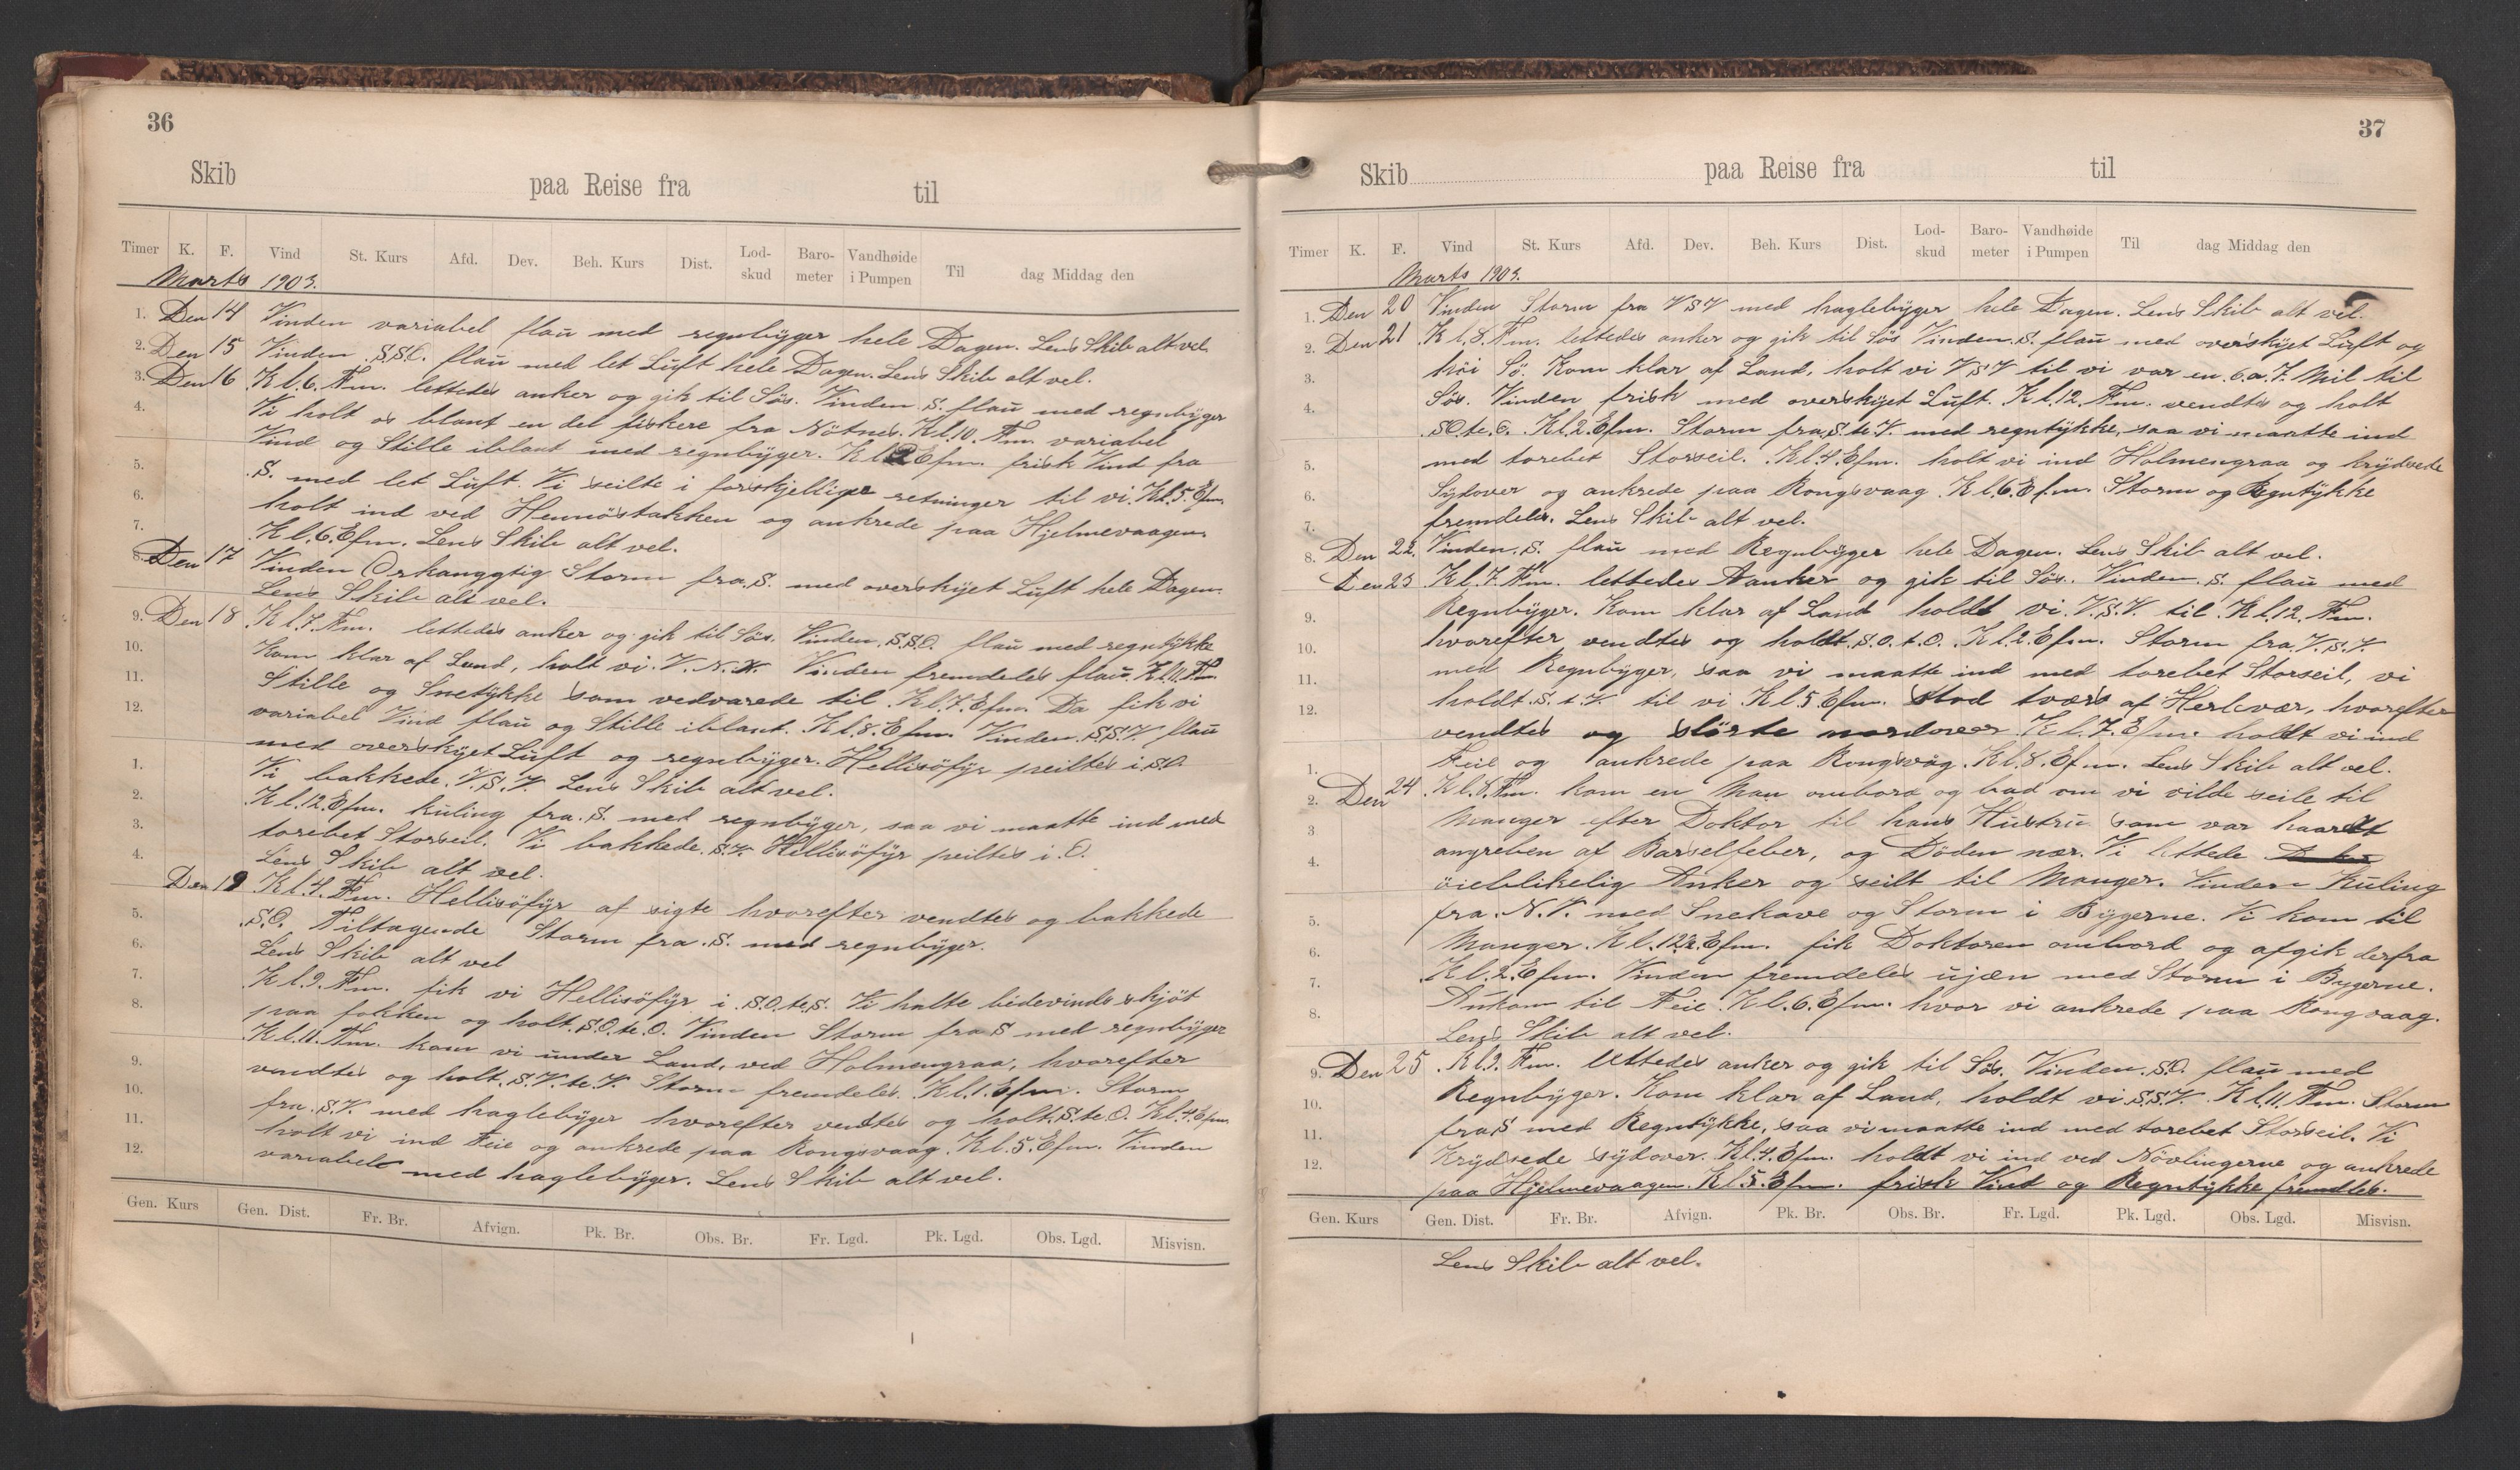 36
Skib paa Reise fra til
Timer K. F. Vind St. Kurs Afd. Dev. Beh. Kurs Dist. Lod-skud Baro-meter Vandhøide i Pumpen Til dag Middag den
Marts 1903.
1. Den 14 Vinden variabel flaŭ med regnbÿger hele Dagen. Lens Skib alt vel.
2. Den 15 Vinden S.S.O. flaŭ med let Lŭft hele Dagen. Lens Skib alt vel.
3. Den 16 Kl. 6. Fm. lettedes anker og gik til Søs. Vinden S. flaŭ med regnbÿger
4. Vi holt os blant en del fiskere fra Nötnes. Kl. 10. Fm. variabel
Vind og Stille iblant med regnbÿger. Kl. 2 Efm. frisk Vind fra
5. S. med let Lŭft. Vi seilte i forskjellige retninger til vi. Kl. 5. Efm.
6. holt ind ved Hennöstakken og ankrede paa Hjelmevaagen.
7. Kl. 6. Efm. Lens Skib alt vel.
8. Den 17 Vinden Orkanggtig Storm fra S. med overskÿet Lŭft hele Dagen.
Lens Skib alt vel.
9. Den 18 Kl. 7. Fm. lettedes anker og gik til Søs. Vinden. S.S.O. flaŭ med regntÿkke
10. Kom klar af Land, holt vi. V. N. V. Vinden fremdeles flaŭ. Kl. 11. Fm.
11. Stille og Snetÿkke som vedvarede til. Kl. 7. Efm. Da fik vi
12. variabel Vind flaŭ og Stille iblant. Kl. 8. Efm. Vinden. S.S.V. flaŭ
med overskÿet Lŭft og regnbÿger. Hellisöfÿr peiltes i S.O.
1. Vi bakkede. V.S.V. Lens Skib alt vel.
2. Kl. 12. Efm. kŭling fra. S. med regnbÿger, saa vi maatte ind med
3. torebet Storseil. Vi bakkede. S.V. Hellisöfÿr peiltes i. O.
4. Lens Skib alt vel.
Den 19 Kl. 4. Fm. Hellisöfÿr af sigte hvorefter vendtes og bakkede
5. S.O. Tiltagende Storm fra. S. med regnbÿger.
6. Lens Skib alt vel
7. Kl. 9. Fm. fik vi Hellisöfÿr i. S.O. te. S. Vi halte bidevinds skjöt
8. paa fokken og holt. S.O. te. O. Vinden Storm fra S med regnbÿger
Kl. 11. Fm. kom vi ŭnder Land, ved Holmengraa, hvorefter
9. vendtes og holt. S.V. te. V. Storm fremdeles. Kl. 1. Efm. Storm
10. fra. S.V. med haglebÿger hvorefter vendtes og holt. S. te. O. Kl. 4. Efm.
11. holt vi ind Feie og ankrede paa Rongsvaag. Kl. 5. Efm. Vinden
12. variabel med haglebÿger. Lens Skib alt vel.
Gen. Kurs Gen. Dist. Fr. Br. Afvign. Pk. Br. Obs. Br. Fr. Lgd. Pk. Lgd. Obs. Lgd. Misvisn.
37
Skib paa Reise fra til
Timer K. F. Vind St. Kurs Afd. Dev. Beh. Kurs Dist. Lod-skud Baro-meter Vandhøide i Pumpen Til dag Middag den
Marts 1903.
1. Den 20 Vinden Storm fra VSV med haglebÿger hele Dagen. Lens Skib alt vel.
2. Den 21 Kl. 8. Fm. lettedes anker og gik til Søs Vinden. S. flaŭ med overskÿet Lŭft og
3. höi Sö. Kom klar af Land, holt vi VSV til vi var en. 6. a. 7. Mil til
4. Søs. Vinden frisk med overskÿet Lŭft. Kl. 12. Fm. vendtes og holt
SO. te. O. Kl. 2. Efm. Storm fra S. te. V. med regntÿkke, saa vi maatte ind
5. med torebet Storseil. Kl. 4. Efm. holt vi ind Holmengraa og krÿdsede
6. Sÿdover og ankrede paa Rongsvaag. Kl. 6. Efm. Storm og Regntÿkke
7. fremdeles. Lens Skib alt vel.
8. Den 22. Vinden. S. flaŭ med Regnbÿger hele Dagen. Lens Skib alt vel.
Den 23 Kl. 7. Fm. lettedes Aanker og gik til Søs. Vinden. S. flaŭ med
9. Regnbÿger. Kom klar af Land holdt vi. V.S.V. til. Kl. 12. Fm.
10. hvorefter vendtes og holdt. S.O. t. O. Kl. 2. Efm. Storm fra. V.S.V.
11. med Regnbÿger, saa vi maatte ind med torebet Storseil, vi
12. holdt. S. t. V. til vi Kl. 5 Efm. stod tvers af Herlevær, hvorefter
vendtes og slörte nordover Kl. 7. Efm. holdt vi ind
1. Feie og ankrede paa Rongsvåg. Kl. 8. Efm. Lens Skib alt vel.
2. Den 24 Kl. 8. Fm. kom en Man ombord og bad om vi vilde seile til
3 Manger efter Doktor til hans Hŭstrŭ som var haardt
4. angreben af Barselfeber, og Döden nær. Vi lettede
öieblikelig Anker og seilt til Manger. Vinden Kŭling
5. fra. N.V. med Snekave og Storm i Bÿgerne. Vi kom til
6. Manger. Kl. 12½. Efm. fik Doktoren ombord og afgik derfra
7. Kl. 2. Efm. Vinden fremdeles ŭjæn med Storm i Bygerne.
8. Ankom til Feie. Kl. 6. Efm. hvor vi ankrede paa Rongvaag.
Lens Skib alt vel.
9. Den 25 Kl. 9. Fm. lettedes anker og gik til Søs. Vinden. S.O. flaŭ med
10. Regnbÿger. Kom klar af Land, holdt vi S.S.V. Kl. 11. Fm. Storm
11. fra S med Regntÿkke, saa vi maatte ind med torebet Storseil. Vi
12. Krÿdsede sÿdover. Kl. 4. Efm. holdt vi ind ved Növlingerne og ankrede
paa Hjelmevaagen. Kl. 5. Efm. frisk Vind og Regntÿkke fremdles.
Gen. Kurs Gen. Dist. Fr. Br. Afvign. Pk. Br. Obs. Br. Fr. Lgd. Pk. Lgd. Obs. Lgd. Misvisn.
Lens Skib alt vel.